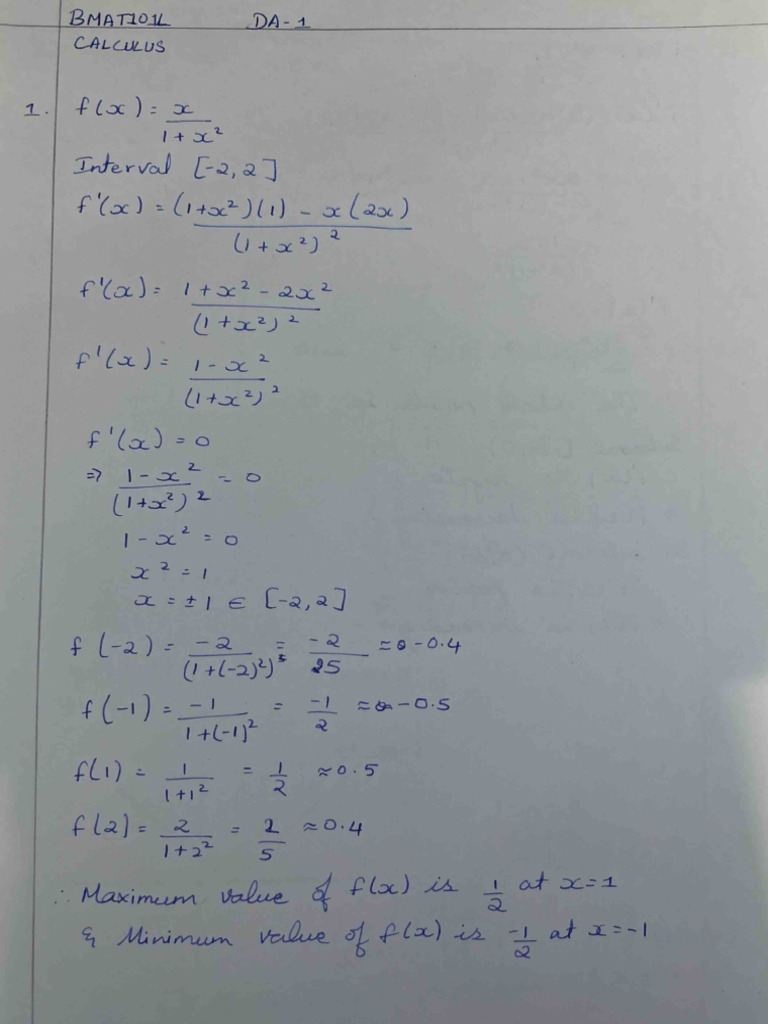 BMAT101L DA-1
CALCULUS
1. f(x) = x / 1+x²
Interval [-2, 2]
f'(x) = (1+x²)(1) - x(2x) / (1+x²)²
f'(x) = 1+x² - 2x² / (1+x²)²
f'(x) = 1-x² / (1+x²)²
f'(x) = 0
⇒ 1-x² / (1+x²)² = 0
1-x² = 0
x² = 1
x = ±1 ∈ [-2, 2]
f(-2) = -2 / (1+(-2)²) = -2/25 ≈ -0.4
f(-1) = -1 / 1+(-1)² = -1/2 ≈ -0.5
f(1) = 1 / 1+1² = 1/2 ≈ 0.5
f(2) = 2 / 1+2² = 2/5 ≈ 0.4
∴ Maximum value of f(x) is 1/2 at x=1
& Minimum value of f(x) is -1/2 at x=-1